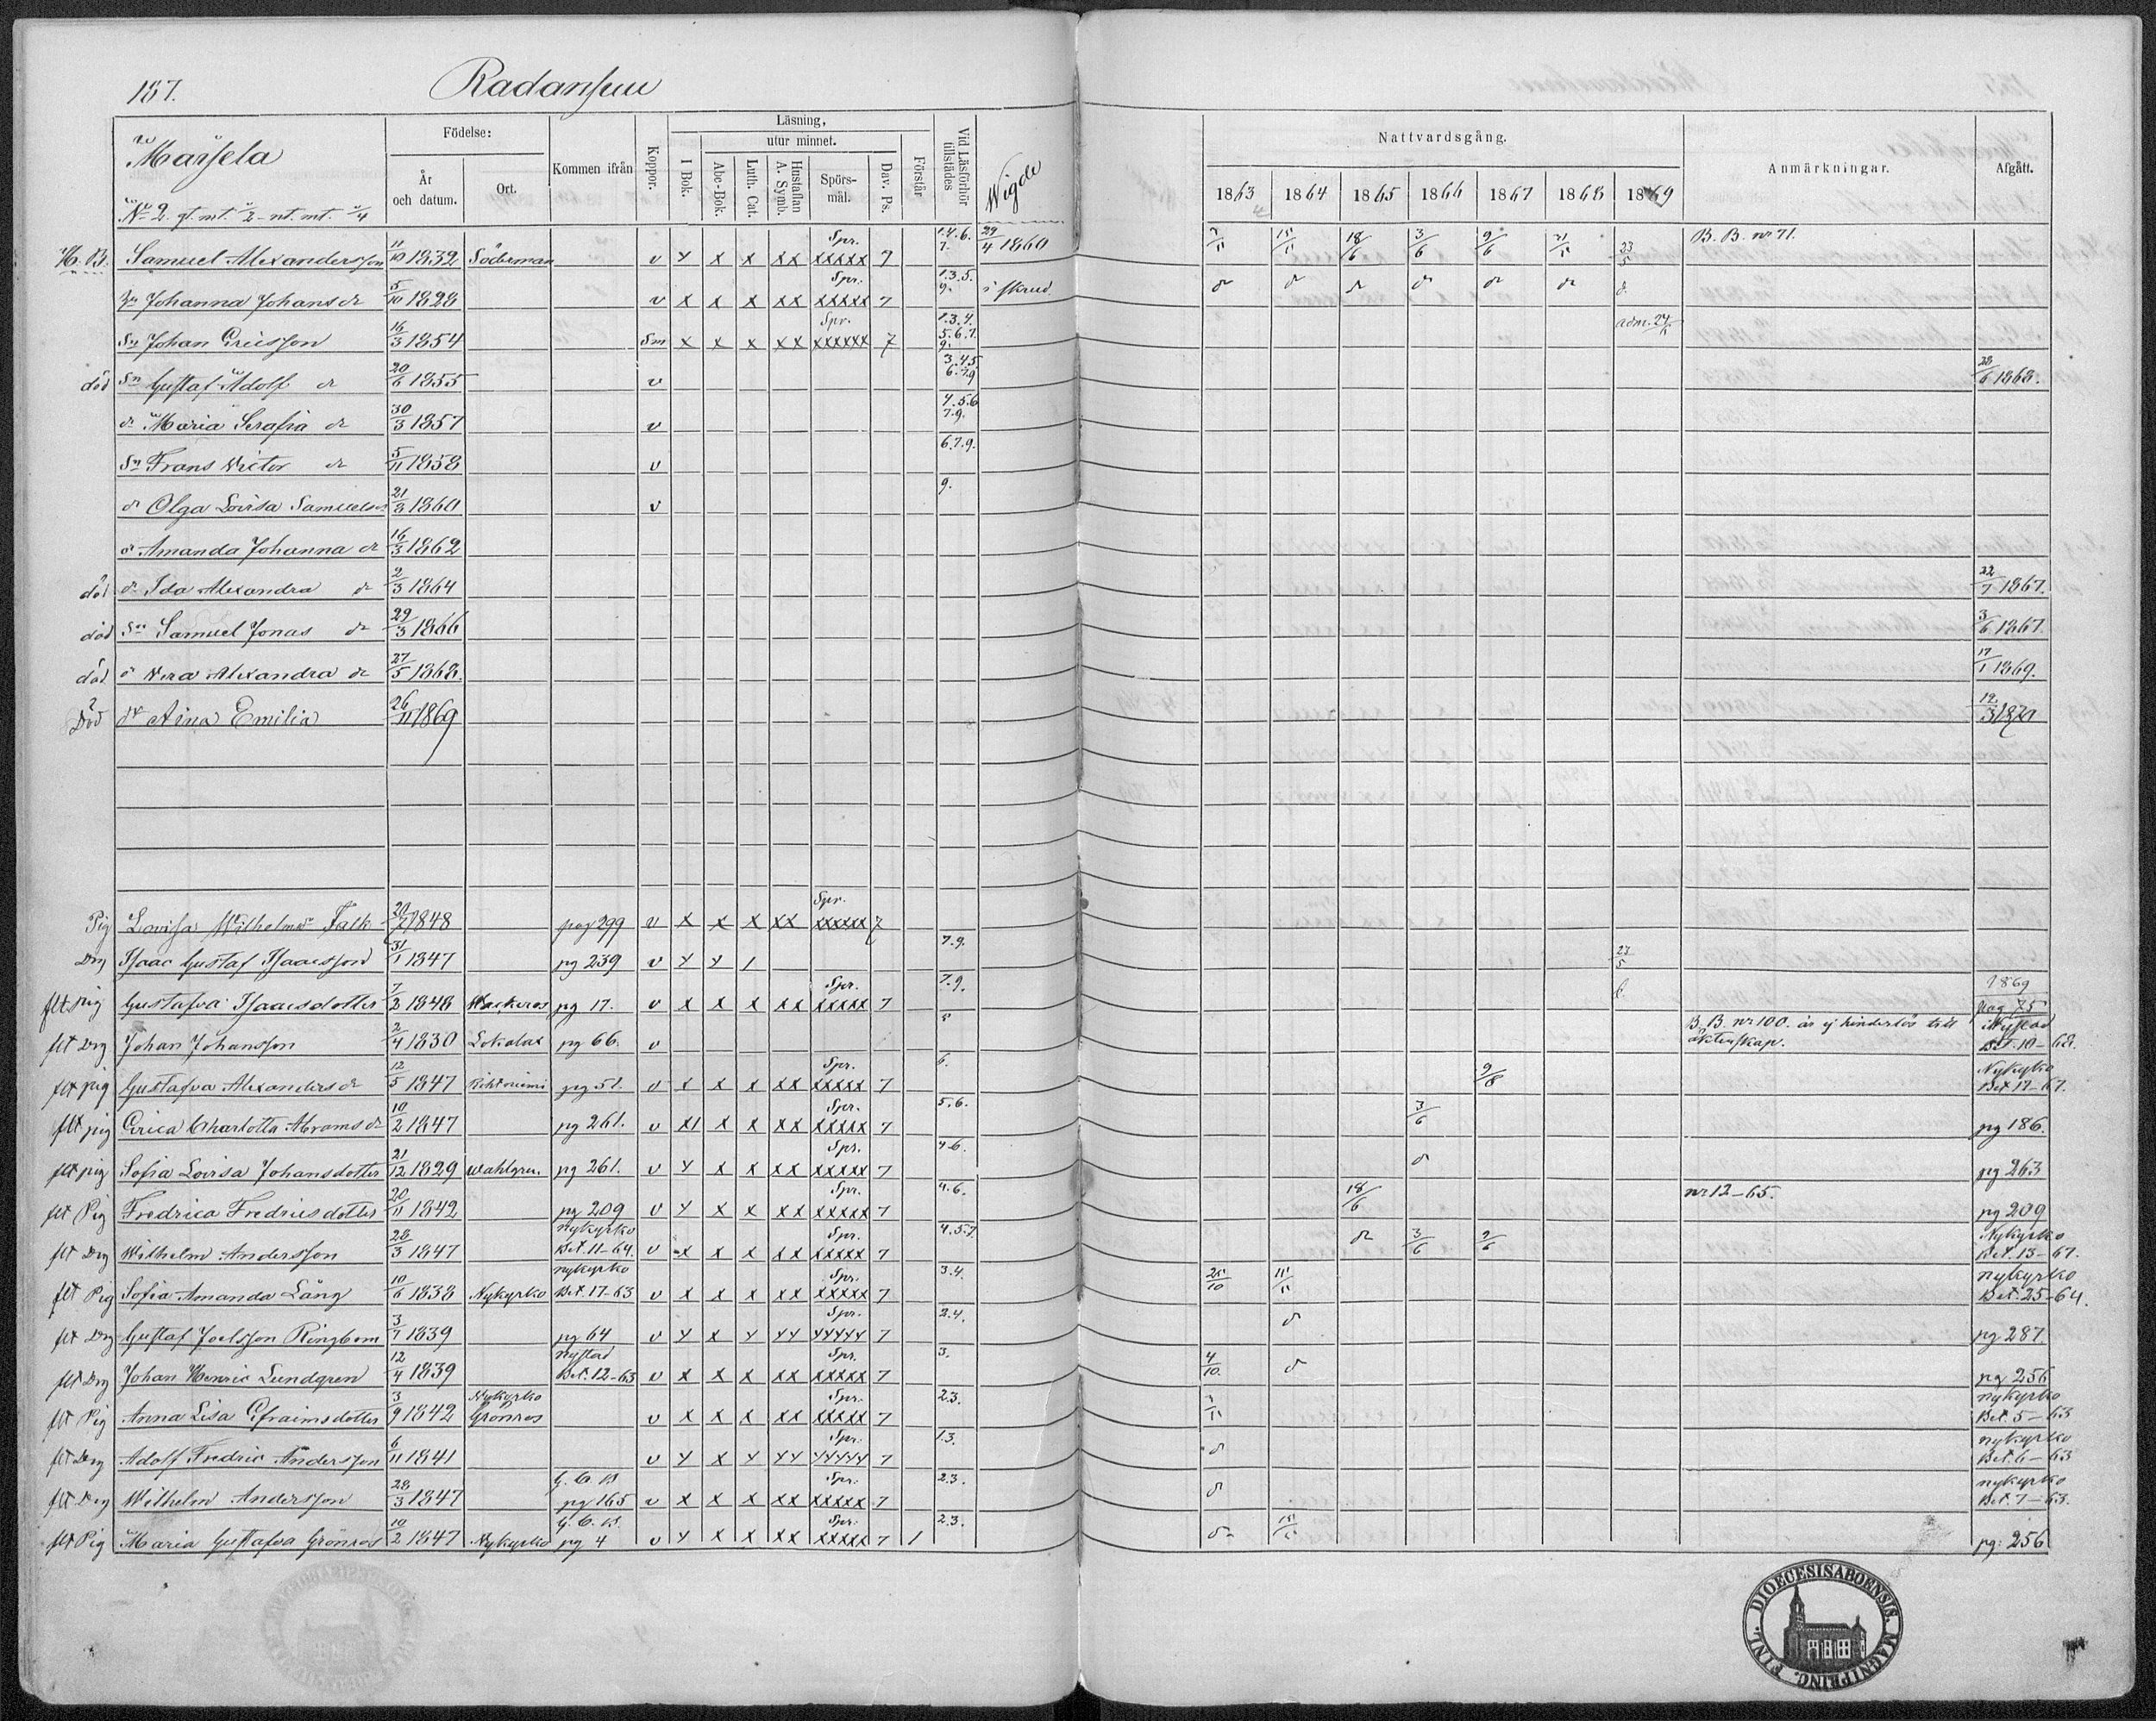 157.
Radansuu
Marjela
No 2. gt. mt. 1/2 - nt. mt. 1/4
Födelse:
År och datum.
Ort.
Kommen ifrån
Koppor.
Läsning,
I Bok.
utur minnet.
Abc-Bok.
Luth. Cat.
Hustaflan A. Symb.
Spörs-mål.
Dav. Ps.
Förstår
Vid Läsförhör tillstädes
Wigde
Nattvardsgång.
1863 1864 1865 1866 1867 1868 1869
Anmärkningar.
Afgått.
Samuel Alexandersson 11/10 1832 Söderman v x x x xx Spr. xxxxx 7 1.4.6. 7. 29/4 1860 18/6 3/6 9/6 23/5 B. B. nr 71.
Johanna Johansdr 5/10 1828 v x x x xx Spr. xxxxx 7 1.3.5. 9. i skrud
Sn Johan Ericsson 16/3 1854 Sm x x x xx Spr. xxxxxx 7 1.3.4. 5.6.7. 9. adm. 24/
död Sn Gustaf Adolf dr 20/6 1855 v 3.4.5 6.7.9 28/6 1868.
dr Maria Serafia dr 30/3 1857 v 4.5.6 7.9.
Sn Frans Victor dr 5/11 1858 v 6.7.9.
dr Olga Lovisa Samuelsdr 21/8 1860 v 9.
dr Amanda Johanna dr 16/3 1862
död dr Ida Alexandra dr 2/3 1864 22/7 1867.
död Sn Samuel Jonas dr 29/3 1866 3/6 1867.
död dr Vera Alexandra dr 27/5 1868. 17/1 1869.
Död dr Aina Emilia 26/11 1869 12/3 1870
Pig Lovisa Wilhelmsdr Falk 20/7 1848 pag 299 v x x x xx Spr. xxxxx 7
Drg Isaac Gustaf Isaacsson 31/1 1847 pg 239 v x x / 7.9. 23/5
flt pig Gustafva Isaacsdotter 7/3 1848 Wackeros pg 17. v x x x xx Spr. xxxxx 7 7.9. 1869 pag 75
flt Drg Johan Johansson 2/4 1830 Lokalax pg 66. v B. B. nr 100. är ej hinderlös till äktenskap. i Nystad Bet. 10-68.
flt pig Gustafva Alexandersdr 12/5 1847 Rihtniemi pg 51. v x x x xx Spr. xxxxx 7 6. 9/8 Nykyrko Bet 17-67.
flt pig Erica Charlotta Abramsdr 10/2 1847 pg 261. v x x x xx Spr. xxxxx 7 5.6. 3/6 pg 186.
flt pig Sofia Lovisa Johansdotter 21/12 1829 Wahlgren. pg 261. v x x x xx Spr. xxxxx 7 4.6. pg 263
flt Pig Fredrica Fredricsdotter 20/11 1842 pg 209 v x x x xx Spr. xxxxx 7 4.6. 18/6 nr 12-65. pg 209
flt Drg Wilhelm Andersson 28/3 1847 nykyrko Bet. 11-64. v x x x xx Spr. xxxxx 7 4.5.7. dr 3/6 9/6 Nykyrko Bet. 13-67.
flt Pig Sofia Amanda Lång 10/6 1838 Nykyrko nykyrko Bet. 17-63 v x x x xx Spr. xxxxx 7 3.4. 25/10 nykyrko Bet. 25-64.
flt Drg Gustaf Joelsson Ringbom 3/7 1839 pg 64 v x x x xx Spr. xxxxx 7 2.4. pg 287.
flt Drg Johan Henric Lundgren 12/4 1839 nystad Bet. 12-63 v x x x xx Spr. xxxxx 7 3. 4/10. pg 256
flt Pig Anna Lisa Efraimsdotter 3/9 1842 Nykyrko Grönros v x x x xx Spr. xxxxx 7 2.3. nykyrko Bet. 5-63
flt Drg Adolf Fredric Andersson 6/11 1841 v x x x xx Spr. xxxxx 7 1.3. nykyrko Bet. 6-63
flt Drg Wilhelm Andersson 28/3 1847 G. C. B. pg 165 v x x x xx Spr. xxxxx 7 2.3. nykyrko Bet. 7-63.
flt Pig Maria Gustafva Grönros 10/2 1847 Nykyrko G. C. B. pg 4 v x x x xx Spr. xxxxx 7 1 2.3. pg: 256
FINL. DIOECESIS ABOENSIS. MAGNI PRINC.